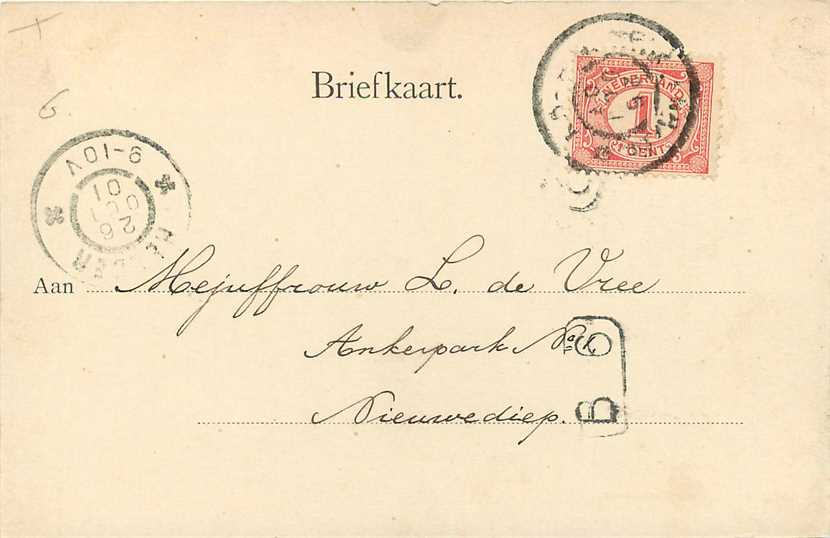 Briefkaart.
NEDERLAND
1
CENT
6
9-10V
26
01
HELDER
Aan Mejuffrouw L. de Vree
Ankerpark No
Nieuwediep.
B 6